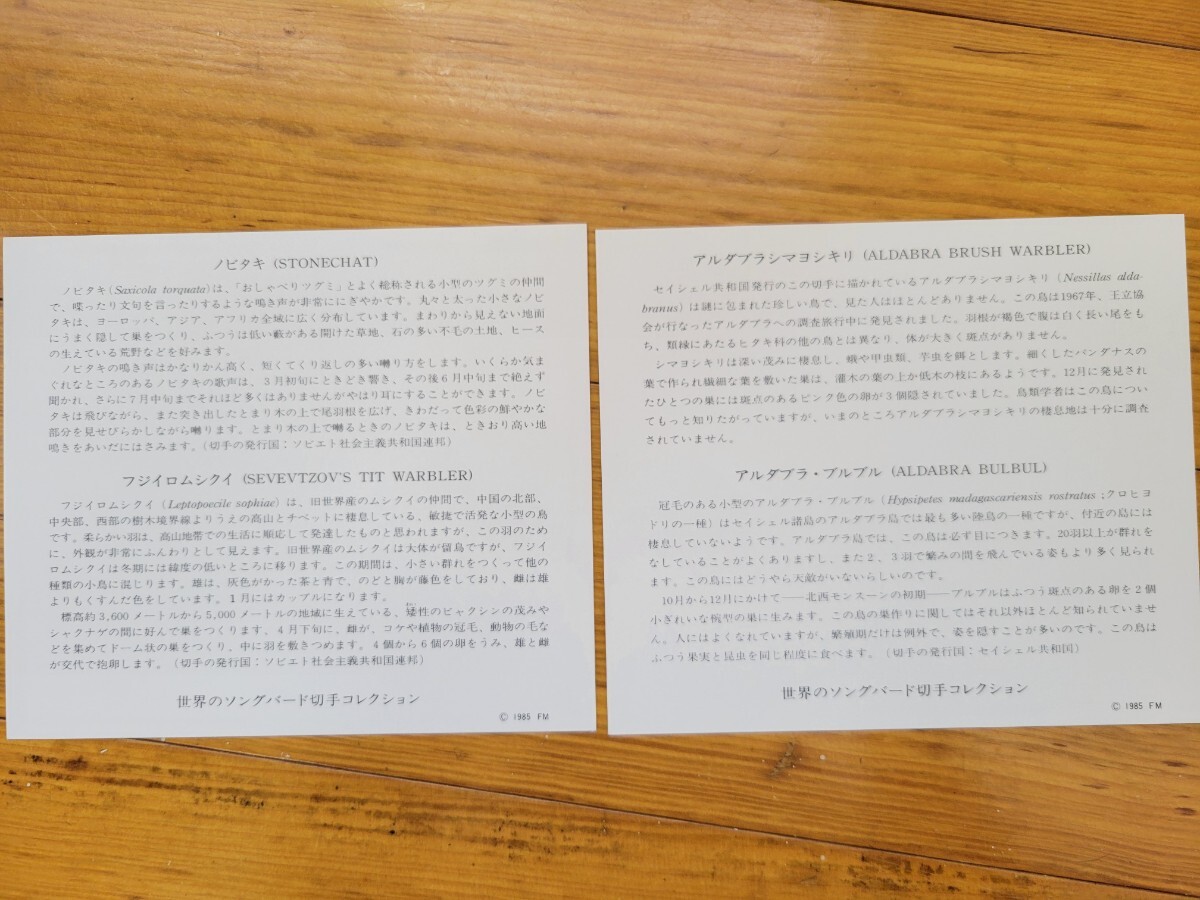 ノビタキ (STONECHAT)
ノビタキ(Saxicola torquata)は、「おしゃべりツグミ」とよく総称される小型のツグミの仲間
で、喋ったり文句を言ったりするような鳴き声が非常ににぎやかです。丸々と太った小さなノビ
タキは、ヨーロッパ、アジア、アフリカ全域に広く分布しています。まわりから見えない地面
にうまく隠して巣をつくり、ふつうは低い藪がある開けた草地、石の多い不毛の土地、ヒース
の生えている荒野などを好みます。
ノビタキの鳴き声はかなりかん高く、短くてくり返しの多い囀り方をします。いくらか気ま
ぐれなところのあるノビタキの歌声は、3月初旬にときどき響き、その後6月中旬まで絶えず
聞かれ、さらに7月中旬までそれほど多くはありませんがやはり耳にすることができます。ノビ
タキは飛びながら、また突き出したとまり木の上で尾羽根を広げ、きわだって色彩の鮮やかな
部分を見せびらかしながら囀ります。とまり木の上で囀るときのノビタキは、ときおり高い地
鳴きをあいだにはさみます。(切手の発行国:ソビエト社会主義共和国連邦)
フジイロムシクイ (SEVEVTZOV'S TIT WARBLER)
フジイロムシクイ(Leptopoecile sophiae)は、旧世界産のムシクイの仲間で、中国の北部、
中央部、西部の樹木境界線よりうえの高山とチベットに棲息している、敏捷で活発な小型の鳥
です。柔らかい羽は、高山地帯での生活に順応して発達したものと思われますが、この羽のため
に、外観が非常にふんわりとして見えます。旧世界産のムシクイは大体が留鳥ですが、フジイ
ロムシクイは冬期には緯度の低いところに移ります。この期間は、小さい群れをつくって他の
種類の小鳥に混じります。雄は、灰色がかった茶と青で、のどと胸が藤色をしており、雌は雄
よりもくすんだ色をしています。1月にはカップルになります。
標高約3,600メートルから5,000メートルの地域に生えている、矮性のビャクシンの茂みや
シャクナゲの間に好んで巣をつくります。4月下旬に、雌が、コケや植物の冠毛、動物の毛な
どを集めてドーム状の巣をつくり、中に羽を敷きつめます。4個から6個の卵をうみ、雄と雌
が交代で抱卵します。(切手の発行国:ソビエト社会主義共和国連邦)
世界のソングバード切手コレクション
© 1985 FM
アルダブラシマヨシキリ (ALDABRA BRUSH WARBLER)
セイシェル共和国発行のこの切手に描かれているアルダブラシマヨシキリ(Nessillas alda-
branus)は謎に包まれた珍しい鳥で、見た人はほとんどありません。この鳥は1967年、王立協
会が行なったアルダブラへの調査旅行中に発見されました。羽根が褐色で腹は白く長い尾をも
ち、類縁にあたるヒタキ科の他の鳥とは異なり、体が大きく斑点がありません。
シマヨシキリは深い茂みに棲息し、蛾や甲虫類、芋虫を餌とします。細くしたパンダナスの
葉で作られ繊細な葉を敷いた巣は、灌木の葉の上か低木の枝にあるようです。12月に発見され
たひとつの巣には斑点のあるピンク色の卵が3個隠されていました。鳥類学者はこの鳥につい
てもっと知りたがっていますが、いまのところアルダブラシマヨシキリの棲息地は十分に調査
されていません。
アルダブラ・ブルブル (ALDABRA BULBUL)
冠毛のある小型のアルダブラ・ブルブル(Hypsipetes madagascariensis rostratus ;クロヒヨ
ドリの一種)はセイシェル諸島のアルダブラ島では最も多い陸鳥の一種ですが、付近の島には
棲息していないようです。アルダブラ島では、この鳥は必ず目につきます。20羽以上が群れを
なしていることがよくありますし、また2、3羽で繁みの間を飛んでいる姿もより多く見られ
ます。この鳥にはどうやら天敵がいないらしいのです。
10月から12月にかけて——北西モンスーンの初期——ブルブルはふつう斑点のある卵を2個
小ぎれいな椀型の巣に生みます。この鳥の巣作りに関してはそれ以外ほとんど知られていませ
ん。人にはよくなれていますが、繁殖期だけは例外で、姿を隠すことが多いのです。この鳥は
ふつう果実と昆虫を同じ程度に食べます。(切手の発行国:セイシェル共和国)
世界のソングバード切手コレクション
© 1985 FM